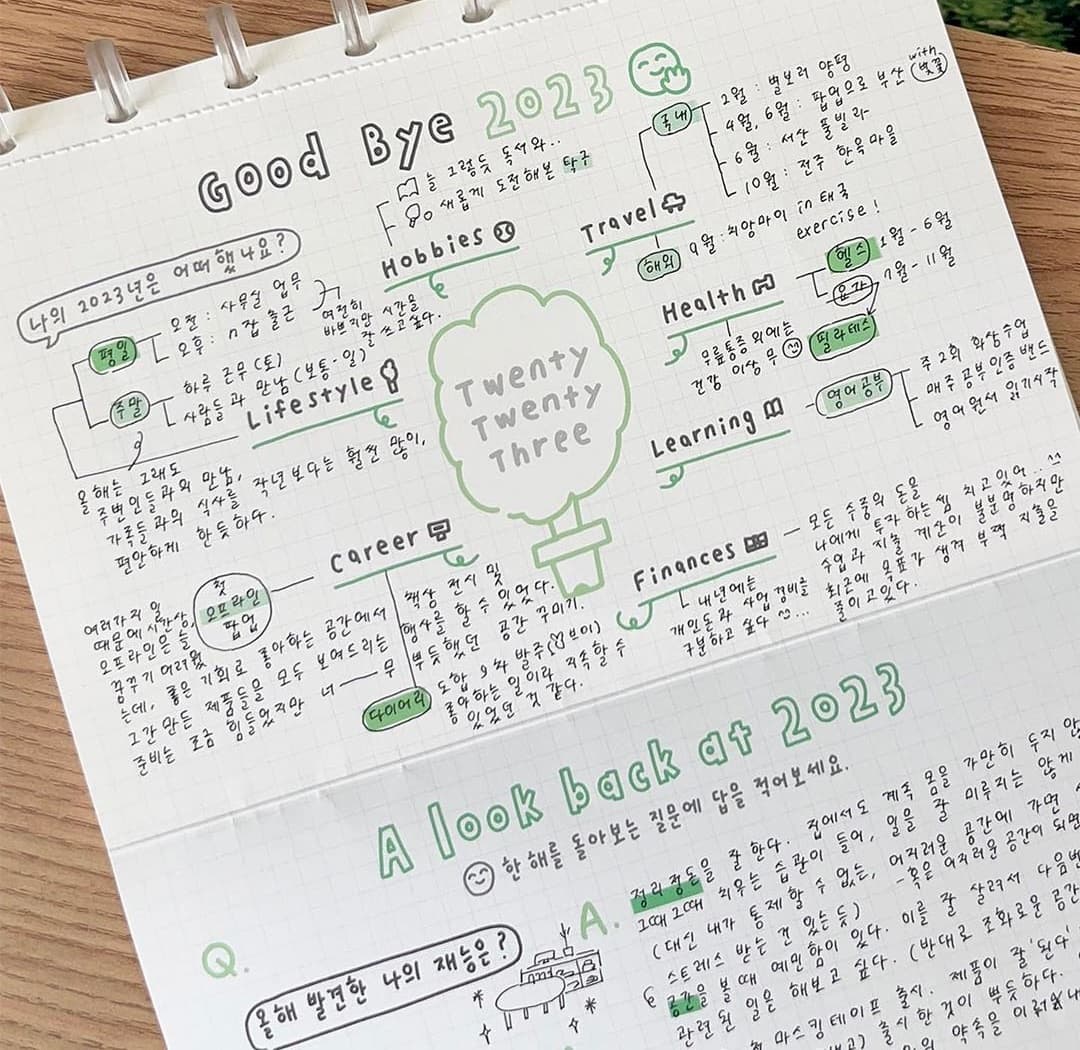 Good Bye 2023
나의 2023년은 어떠했나요?
늘 그렇듯 독서와..
새롭게 도전해본 탁구
Hobbies
Travel
국내
2월 : 별보러 양평
4월, 6월 : 팝업으로 부산 with 벚꽃
6월 : 서산 풀빌라
10월 : 전주 한옥마을
해외
9월 : 치앙마이 in 태국
exercise!
Health
헬스
1월 - 6월
요가
7월 - 11월
필라테스
무릎통증 외에는
건강 이상 무
평일
오전 : 사무실 업무
오후 : n잡 출근
여전히
바쁘지만 시간을
잘 쓰고 싶다.
주말
하루 근무 (토)
사람들과 만남 (보통·일)
Lifestyle
올해는 그래도
주변인들과의 만남,
가족들과의 식사를 작년보다는 훨씬 많이,
편안하게 한듯하다.
Twenty
Twenty
Three
Learning
영어공부
주 2회 화상수업
매주 공부인증 밴드
영어원서 읽기시작
Career
첫
오프라인
팝업
여러가지 일
때문에
오프라인은 늘
꿈꾸기 어려웠
는데, 좋은 기회로 좋아하는 공간에서
그간 만든 제품들을 모두 보여드리는
준비는 조금 힘들었지만 너 — 무
책상 전시 및
행사를 할 수 있었다.
뿌듯했던 공간 꾸미기.
다이어리
도합 9차 발주
좋아하는 일이라 지속할 수
있었던 것 같다.
Finances
모든 수중의 돈을
나에게 투자 하는 셈 치고 있어..
수입과 지출 계산이 불분명하지만
최근에 목표가 생겨 부쩍 지출을
줄이고있다.
내년에는
개인돈과 사업경비를
구분하고 싶다 ...
A look back at 2023
한 해를 돌아보는 질문에 답을 적어보세요.
Q.
올해 발견한 나의 재능은?
A.
정리정돈을 잘 한다. 집에서도 계속 몸을 가만히 두지 않
그때그때 치우는 습관이 들어, 일을 잘 미루지는 않게
(대신 내가 통제할 수 없는, 어지러운 공간에 가면
스트레스 받는 건 있는듯) - 혹은 어지러운 공간이 되면
공간을 볼 때 예민함이 있다. 이를 잘 살려서 다음번
관련된 일은 해보고 싶다. (반대로 조화로운 공간
마스킹테이프 출시. 제품이 잘 '된다'
출시한 것이 뿌듯하다.
약속을